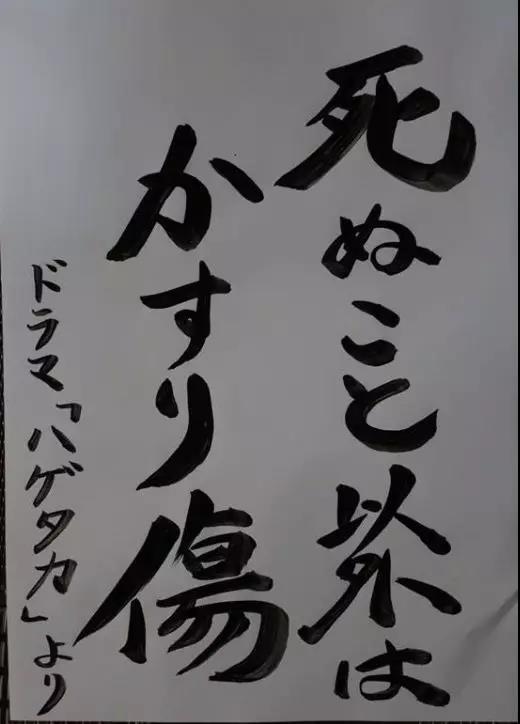 死ぬこと以外は
かすり傷
ドラマ「ハゲタカ」より